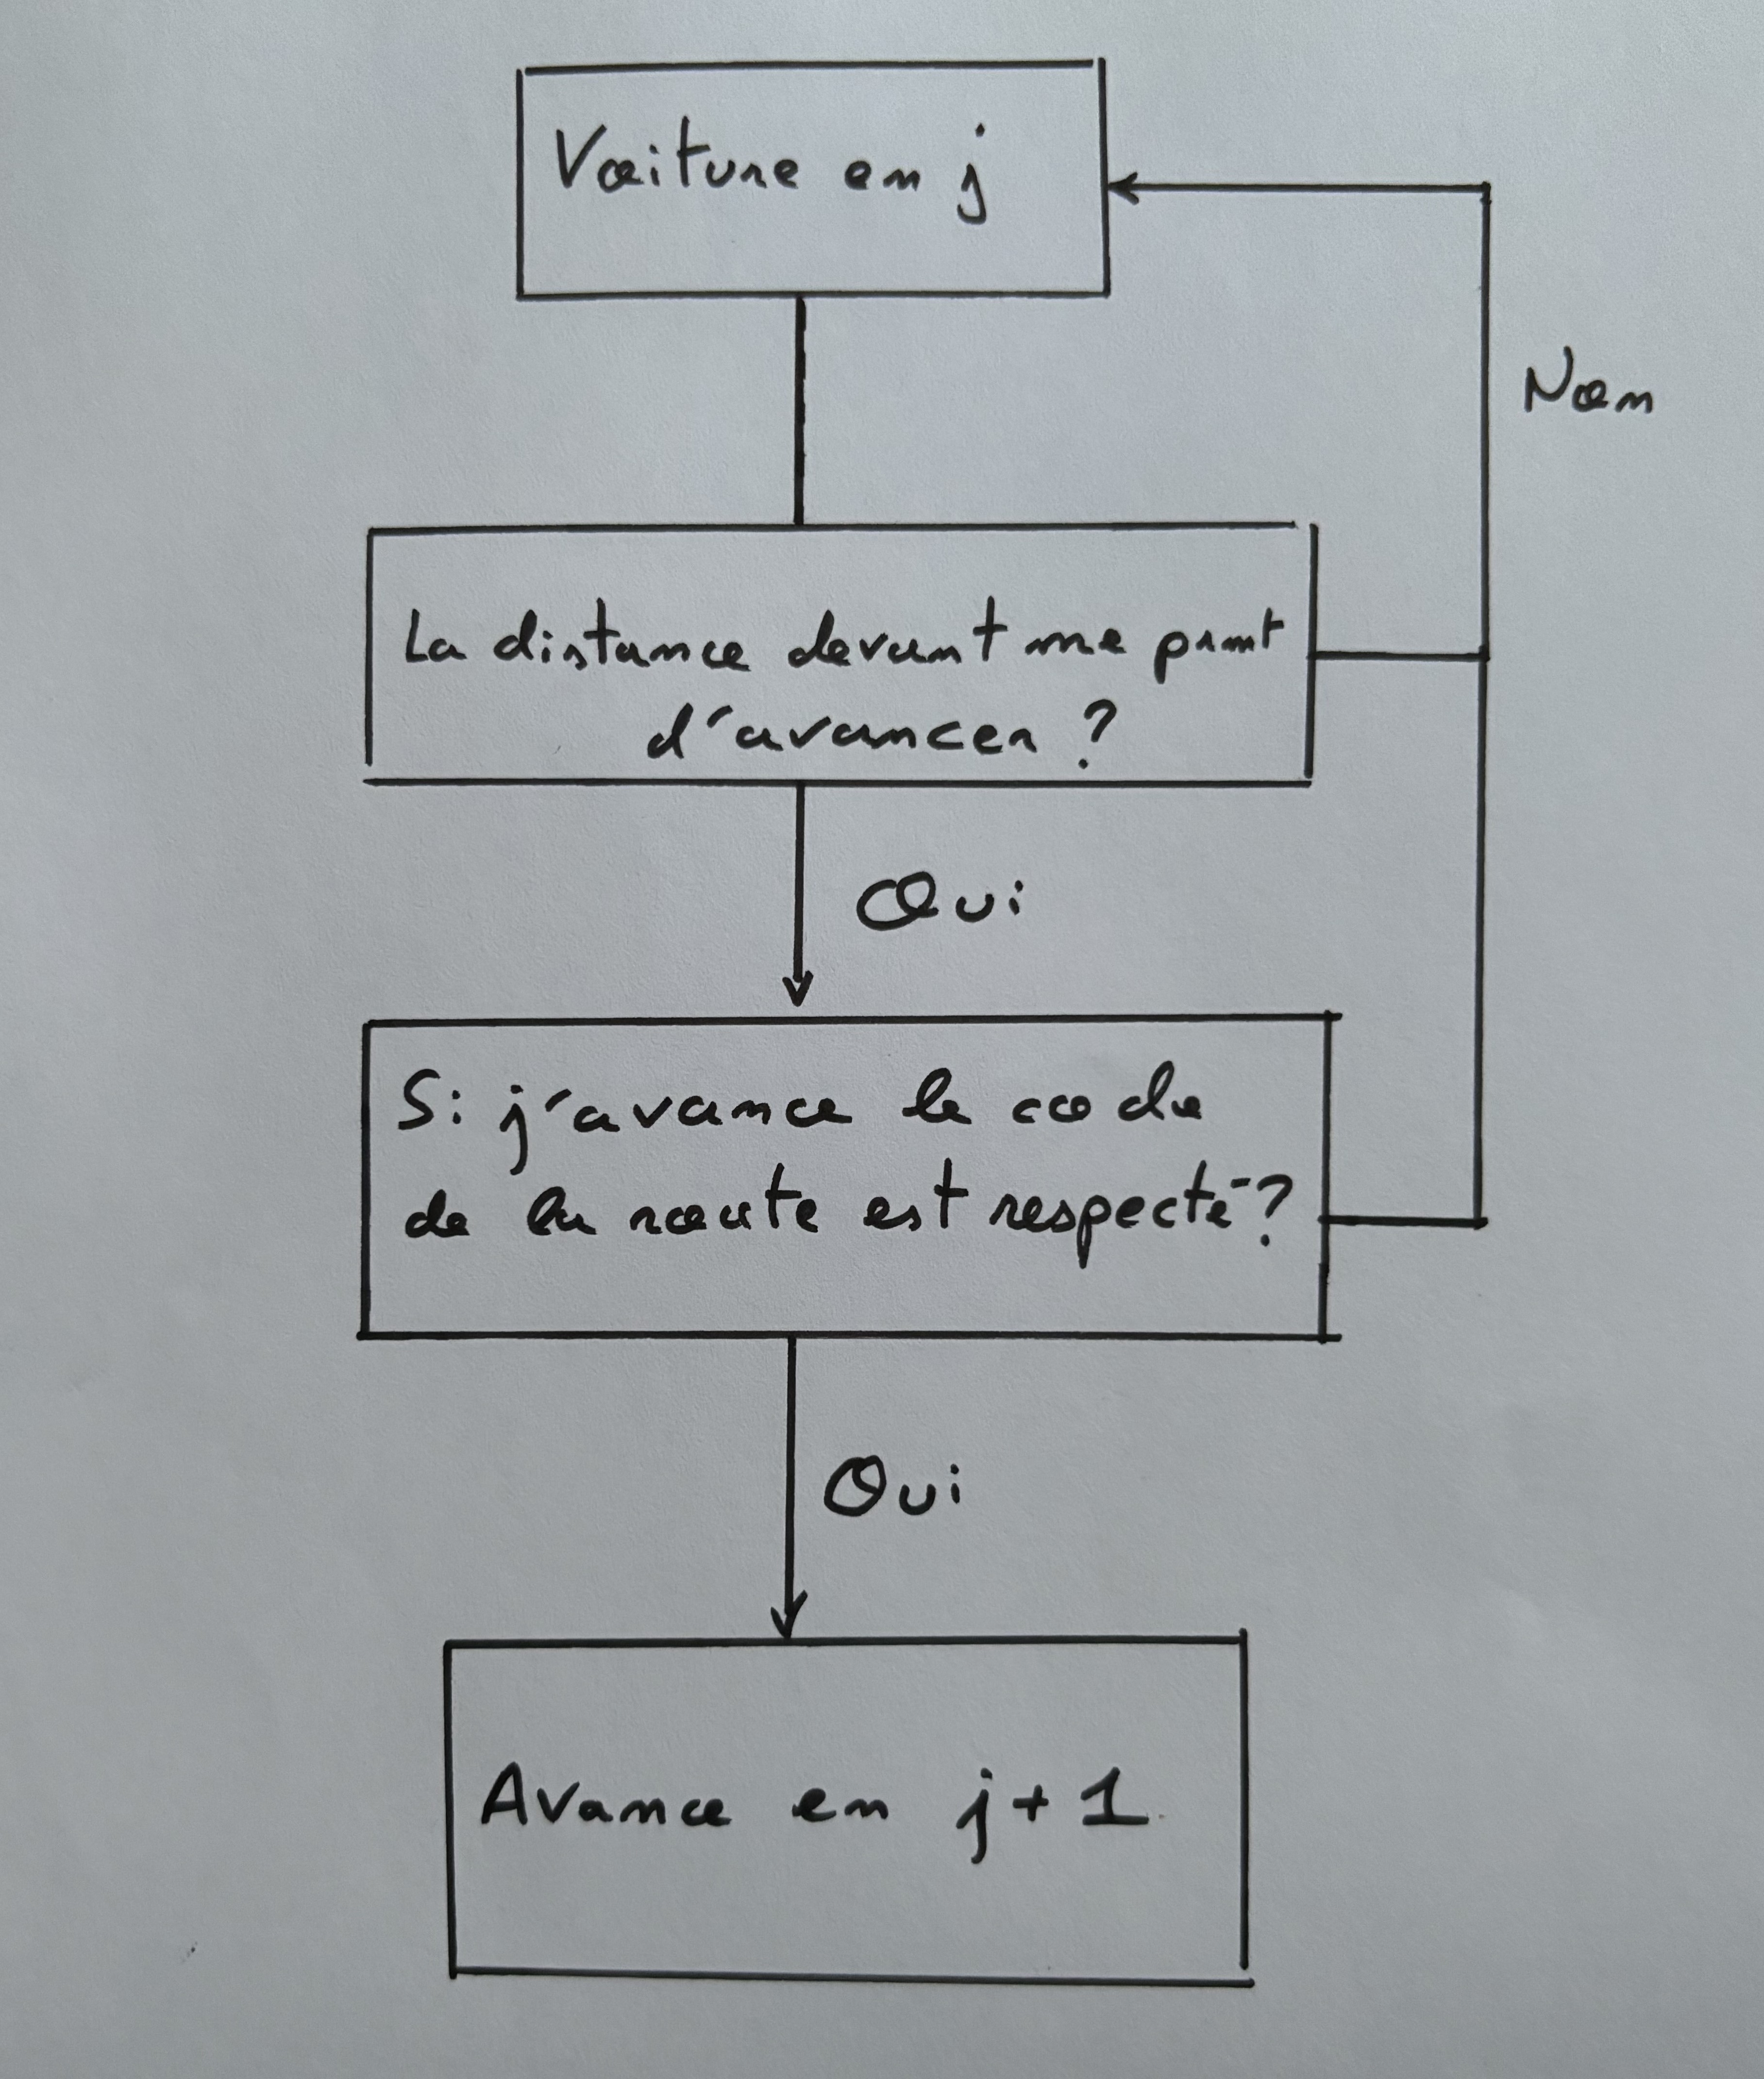 Voiture en j
Non
La distance devant me prmt
d'avancer ?
Oui
Si j'avance le code
de la route est respecté ?
Oui
Avance en j+1